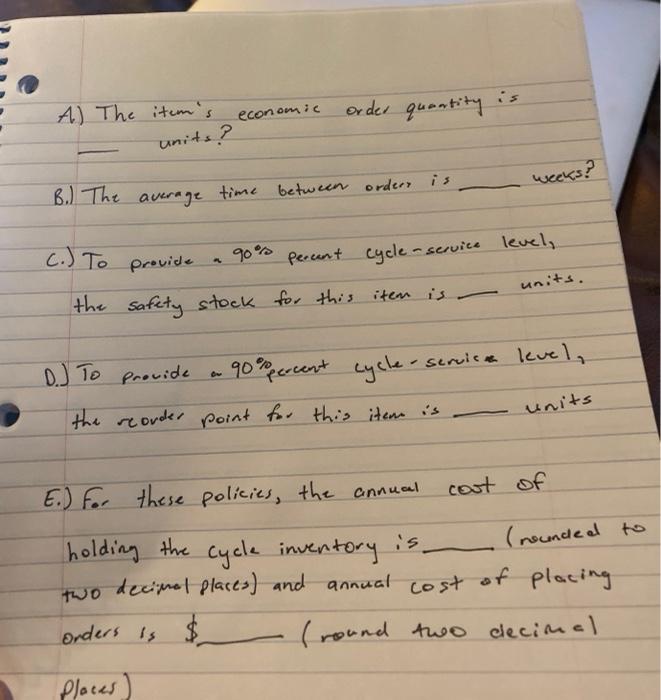 A) The item's economic order quantity is
___ units?
B.) The average time between orders is ____ weeks?
C.) To provide a 90% percent cycle-service level,
the safety stock for this item is ___ units.
D.) To provide a 90% percent cycle-service level,
the reorder point for this item is ____ units
E.) For these policies, the annual cost of
holding the cycle inventory is ____ (rounded to
two decimal places) and annual cost of placing
orders is $____ (round two decimal
places)